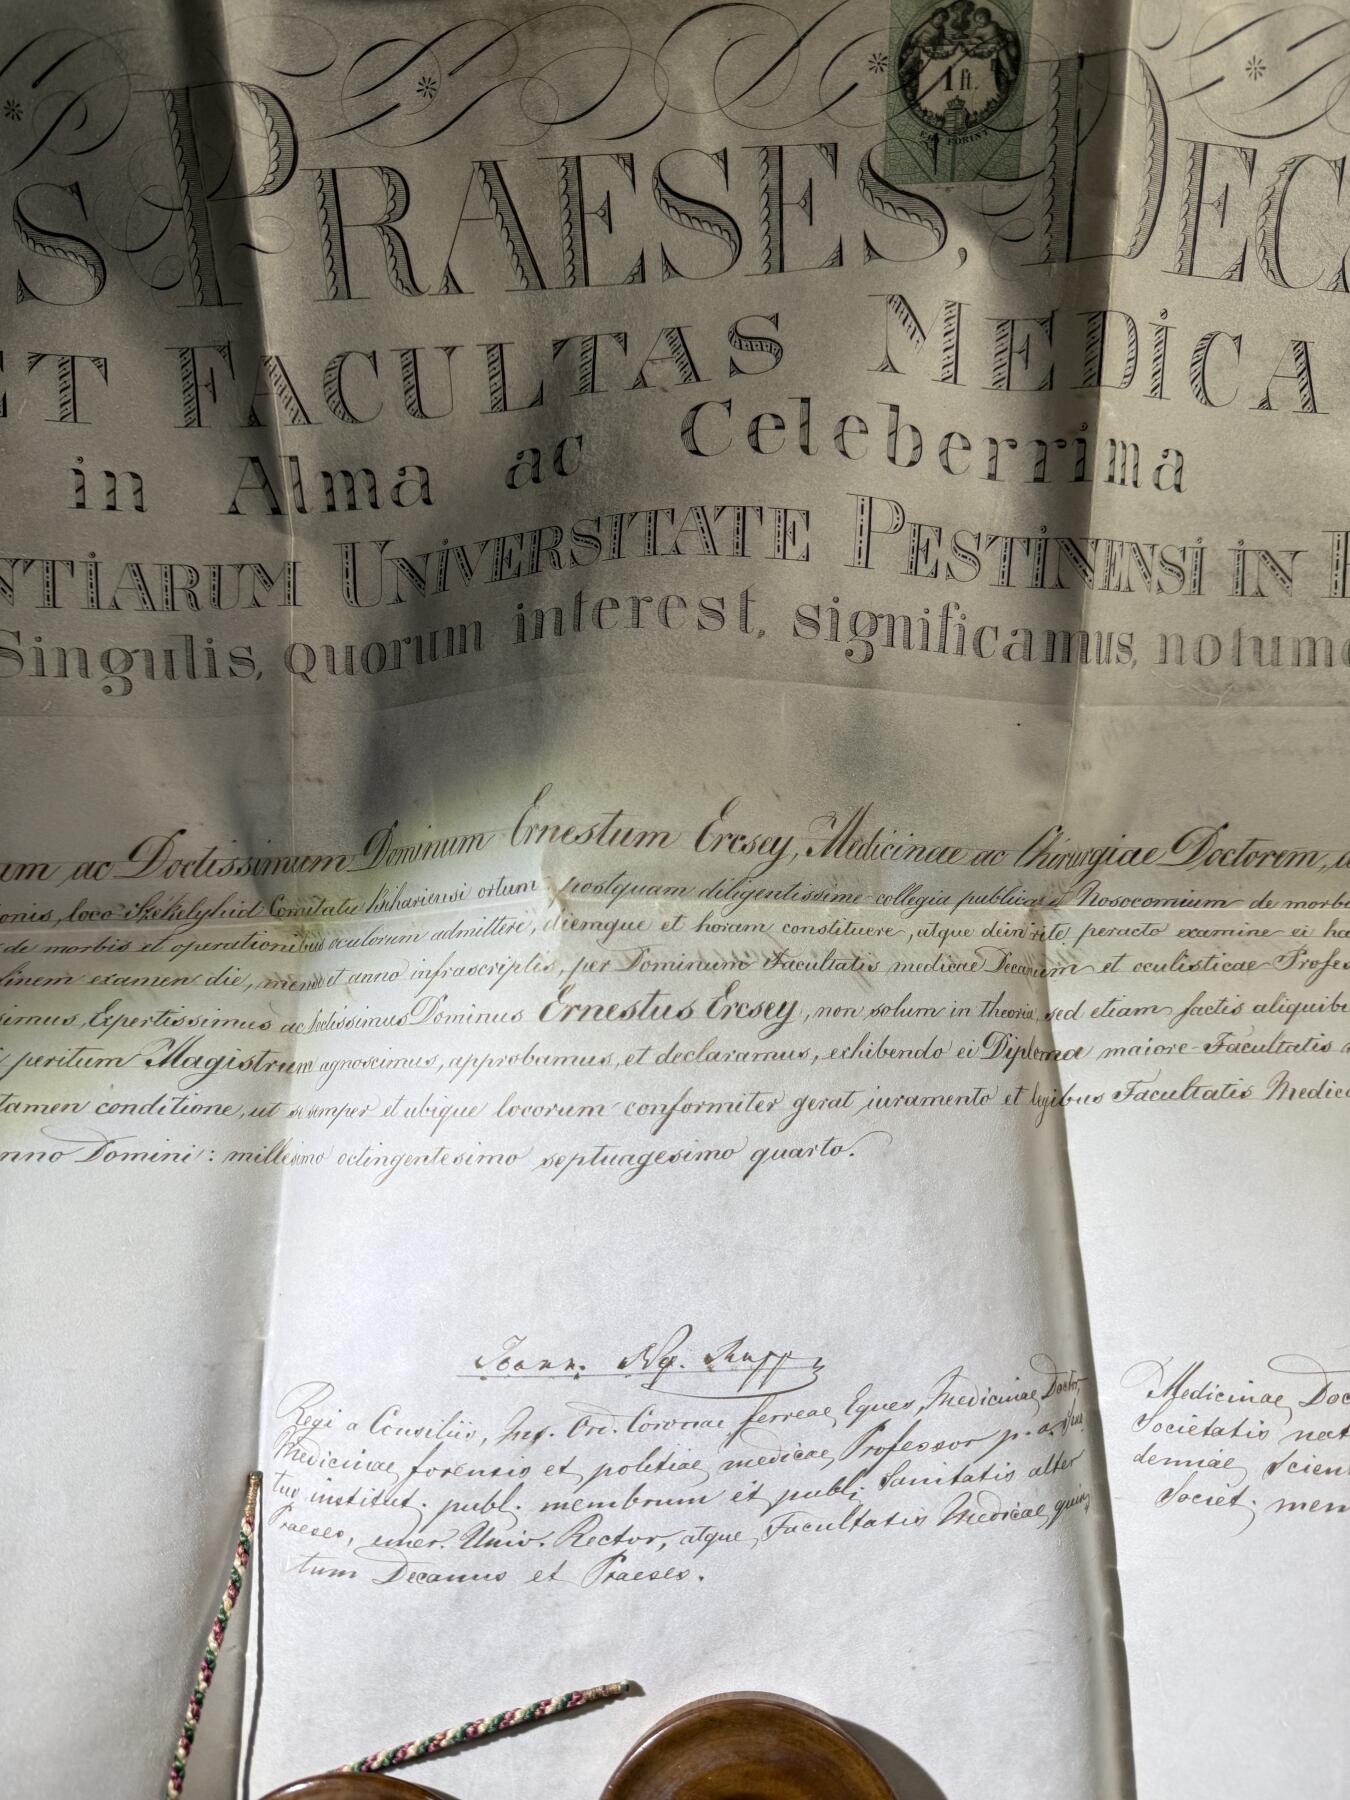 1 ft.
EGY FORINT
S PRAESES, DEC
ET FACULTAS MEDICA
in Alma ac Celeberrima
NTIARUM UNIVERSITATE PESTINENSI IN
Singulis, quorum interest, significamus, notumq
um ac Doctissimum Dominum Ernestum Ercsey, Medicinae ac Chirurgiae Doctorem,
ionis, loco Székelyhid Comitatu Bihariensi ortum, postquam diligentissime collegia publica et Nosocomium de morb
de morbis et operationibus oculorum admittere, diemque et horam constituere, atque dein rite peracto examine ei ha
finem examen die, mense et anno infrascriptis, per Dominum Facultatis medicae Decanum et oculisticae Profes
simus, Expertissimus ac Doctissimus Dominus Ernestus Ercsey, non solum in theoria, sed etiam factis aliquibu
peritum Magistrum agnoscimus, approbamus, et declaramus, exhibendo ei Diploma maiore Facultatis
tamen conditione, ut semper et ubique locorum conformiter gerat iuramento et legibus Facultatis Medic
nno Domini: millesimo octingentesimo septuagesimo quarto.
Joann. Nep. Rupp
Regi a Consiliis, Ins. Ord. Coronae ferreae Eques, Medicinae Doctor,
Medicinae forensis et politiae medicae Professor p. o.
institut. publ. membrum et publ. Sanitatis alter
Praeses, emer. Univ. Rector, atque Facultatis Medicae quin
tum Decanus et Praeses.
Medicinae Doc
Societatis nat
demiae Scien
Societ. mem